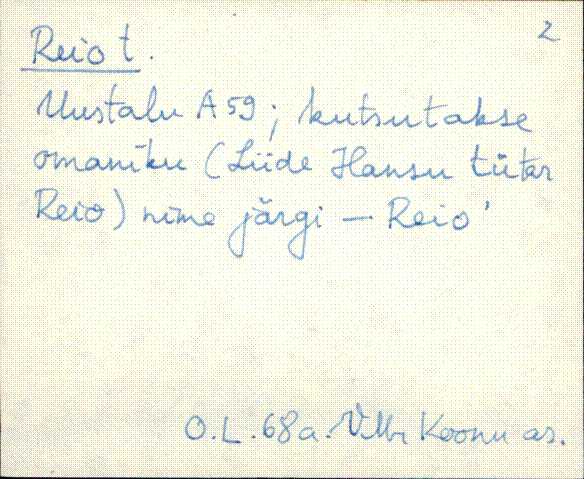 2
Reio t.
Uustalu A 59; kutsutakse
omaniku (Liide Hansu tütar
Reio) nime järgi – Reio'
O.L. 68 a. Koonu as.